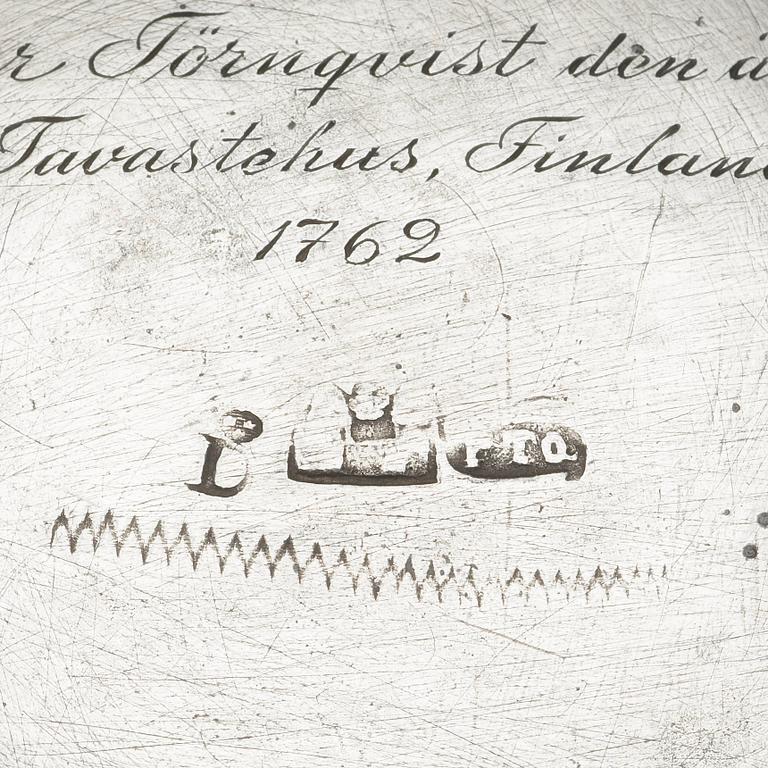 r Törnqvist den ä
Tavastehus, Finlan
1762
L PTQ